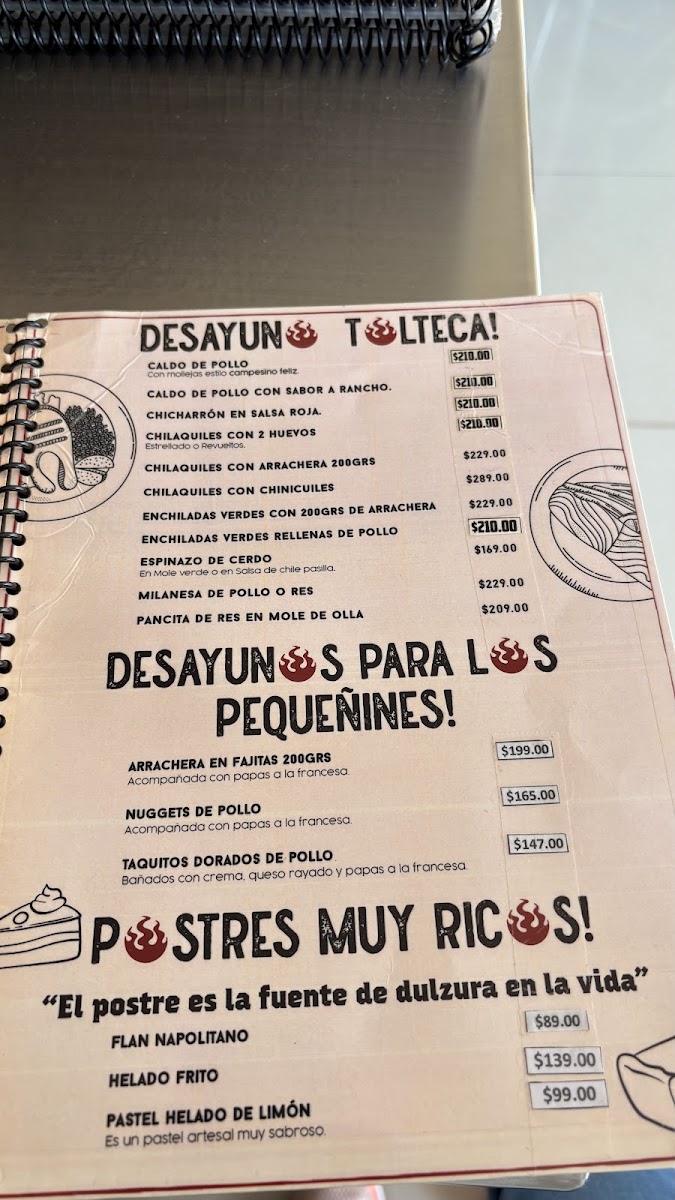 DESAYUNO TOLTECA!
CALDO DE POLLO $210.00
Con mollejas estilo campesino feliz.
CALDO DE POLLO CON SABOR A RANCHO. $210.00
CHICHARRÓN EN SALSA ROJA. $210.00
CHILAQUILES CON 2 HUEVOS $210.00
Estrellado o Revueltos.
CHILAQUILES CON ARRACHERA 200GRS $229.00
CHILAQUILES CON CHINICUILES $289.00
ENCHILADAS VERDES CON 200GRS DE ARRACHERA $229.00
ENCHILADAS VERDES RELLENAS DE POLLO $210.00
ESPINAZO DE CERDO $169.00
En Mole verde o en Salsa de chile pasilla.
MILANESA DE POLLO O RES $229.00
PANCITA DE RES EN MOLE DE OLLA $209.00
DESAYUNOS PARA LOS
PEQUEÑINES!
ARRACHERA EN FAJITAS 200GRS $199.00
Acompañada con papas a la francesa.
NUGGETS DE POLLO $165.00
Acompañada con papas a la francesa.
TAQUITOS DORADOS DE POLLO $147.00
Bañados con crema, queso rayado y papas a la francesa.
POSTRES MUY RICOS!
"El postre es la fuente de dulzura en la vida"
FLAN NAPOLITANO $89.00
HELADO FRITO $139.00
PASTEL HELADO DE LIMÓN $99.00
Es un pastel artesal muy sabroso.